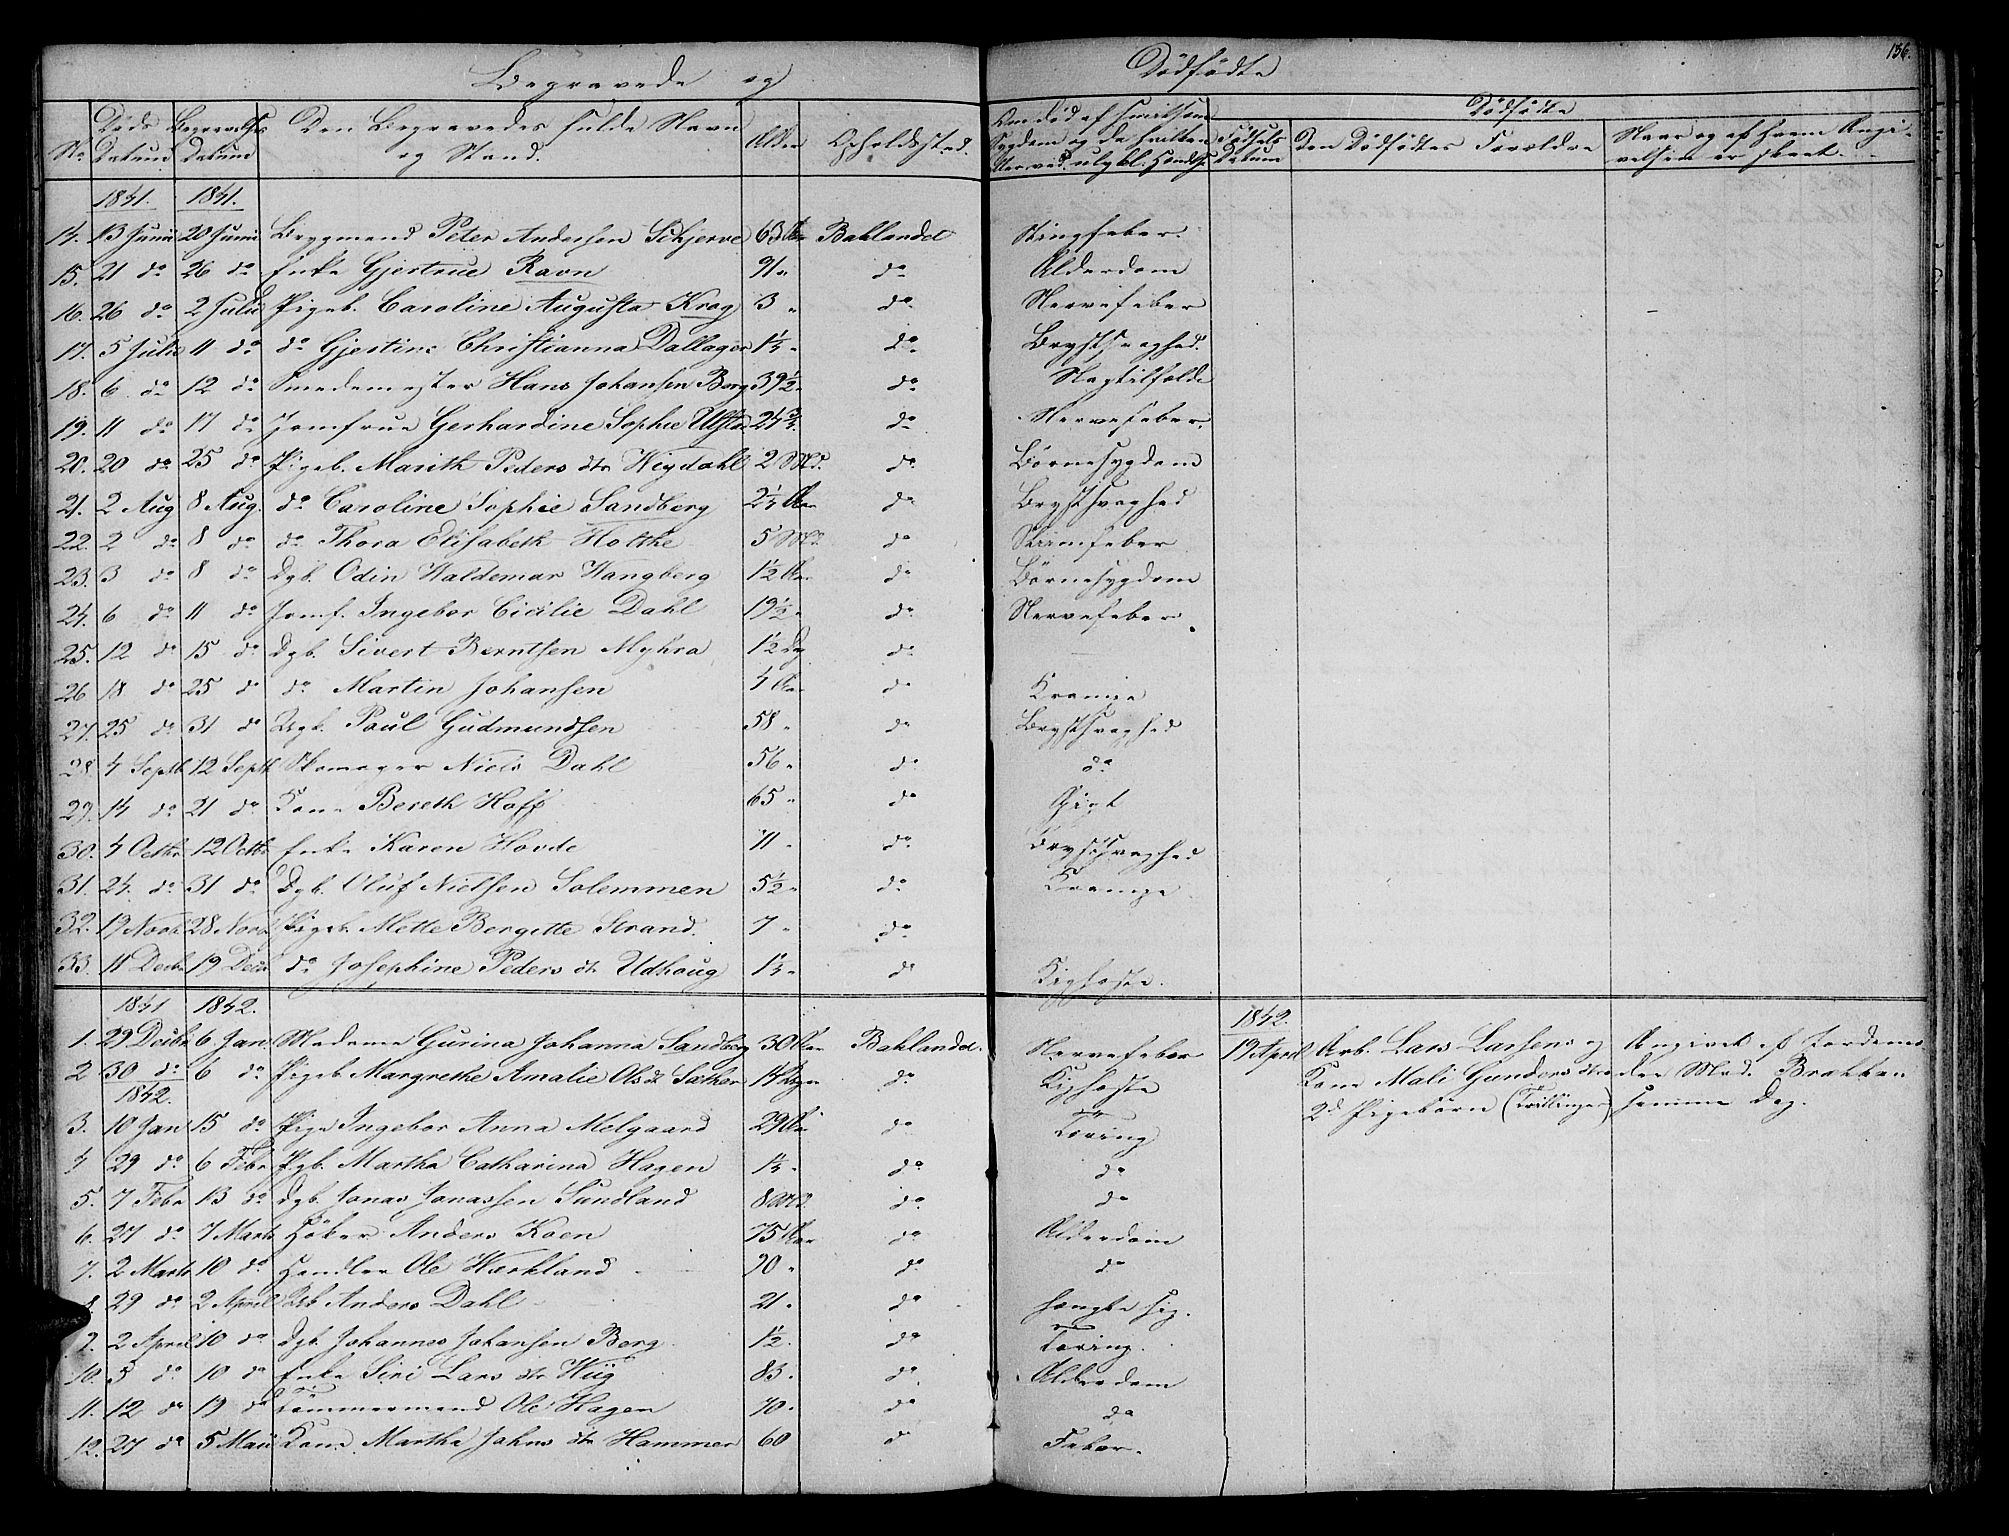 Begravede og Dødfødte 136.
No Døds Datum Begravelses Datum Den Begravedes fulde Navn og Stand. Alder Opholdssted.
Dødfødte
Fødsels Datum Den Dødfødtes Forældre Naar og af hvem Angivelsen er skeet.
1841. 1841.
14. 13 Junii 20 Junii Brygmand Peter Andersen Schjerve 63 Aar Baklandet
15. 21 do 26 do Enke Gjertrue Ravn 91 " do Alderdom
16. 26 do 2 Julii Pigeb. Caroline Augusta Krog 3 " do Nervefeber
17. 5 Julii 11 do do Gjertine Christianna Dallager 1¼ " do Brystsvaghed.
18. 6 do 12 do Smedemester Hans Johansen Berg 39½ " do Slagtilfælde
19. 11 do 17 do Jomfrue Gerhardine Sophie 24¾ do Nervefeber.
20. 20 do 25 do Pigeb. Marith Peders dtr Wigdahl 2 Md. do Børnesygdom
21. 2 Aug 8 Aug. do Caroline Sophie Sandberg 2¼ Aar do Brystsvaghed
22. 2 do 8 do do Thora Elisabeth Holthe 5 Md. do
23. 3 do 8 do Dgb. Odin Waldemar Wangberg 1½ Aar do Børnesygdom
24. 6 do 11 do Jomf. Ingebor Cicilie Dahl 19½ " do Nervefeber
25. 12 do 15 do Dgb. Sivert Berntsen Myhra 1½ Dg do
26 18. do 25 do do Martin Johansen 4 Aar do Krampe
27. 25 do 31 do Paul Gudmundsen 58 " do Brystsvaghed
28. 4 Septb 12 Septb Skomager Niels Dahl 56 " do do
29. 14 do 21 do Kone Bereth Hoff 65 " do Gigt
30. 4 Octbr 12 Octbr Enke Karen Hovde 71 " do Brystsvaghed
31. 24. do 31 do Dgb. Oluf Nielsen Solemmen 5½ " do Krampe
32. 19 Novbr 28 Novbr Pigeb. Mette Bergitte Strand. 7 " do
33. 11 Decbr 19 Decbr do Josephine Peders dtr Udhoug 1¼ " do Kighoste.
1841 1842. 1842.
1. 29 Decbr 6 Jan. Madame Gurina Johanna Sandberg 30 Aar Baklandet. Nervefeber 19 April Arb. Lars Larsens og Angivet af Jordemo
2 30 do 6 do Pigeb. Margrethe Amalie Ols dtr Sæther 14 Dage do Kighoste Kone Mali Gunders dtr der Mad. Brækken
1842. 2d Pigebørn (Tvillinger) samme Dag.
3. 10 Jan 15 do Pige Ingebor Anna Melgaard 29 Aar do Tæring
4 29 do 6 Febr Pgb. Martha Catharina Hagen 1¼ " do do
5. 7 Febr 13 do Dgb. Jonas Jonassen Sundland 8 Md. do do
6. 27 do 7 Marts Anders Koen 75 Aar do Alderdom
7. 2 Marts 10 do Handler Ole Wærkland 90 " do do
8. 29 do 2 April Anders Dahl 21. do hængte sig.
9. 2 April 10 do Dgb. Johannes Johansen Berg 1½. do Tæring.
10. 5 do 10 do Enke Siri Lars dtr Wiig 83. do Alderdom
11. 12 do 19 do Tømmermand Ole Hagen 70. do do
12. 27 do 5 Maii Kone Martha Johns dtr Hammer 60 do Feber.